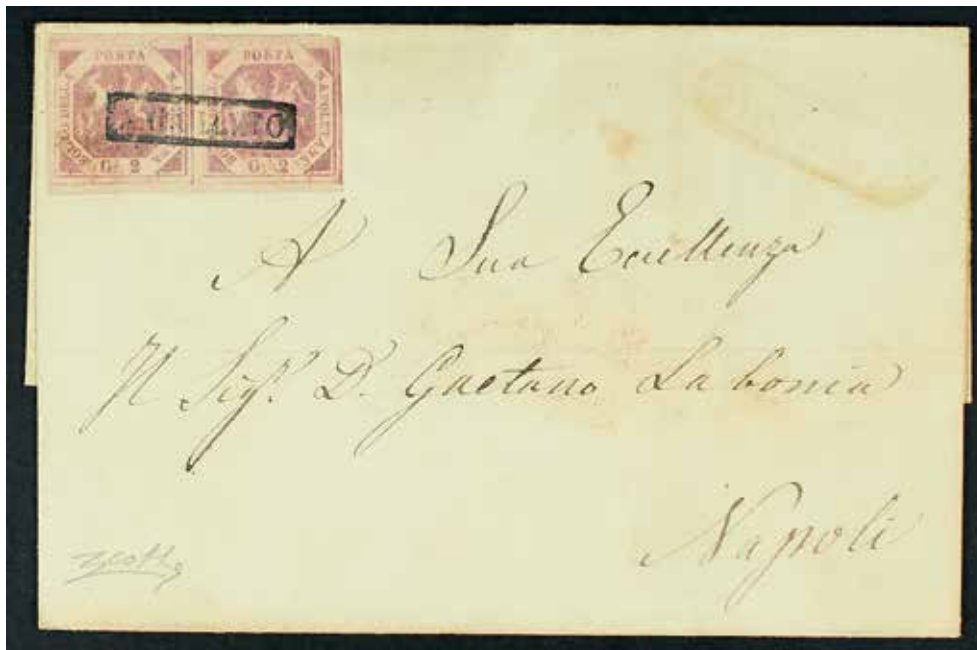 POSTA POSTA
BOLLO DELLA NAPOLETANA
G. 2 G. 2
ANNULLATO
A Sua Eccellenza
Il Sigr. D. Gaetano Labonia
Napoli